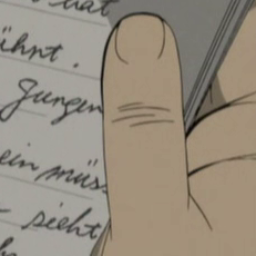 hat
ührt.
Jungen
ein müs
sieht